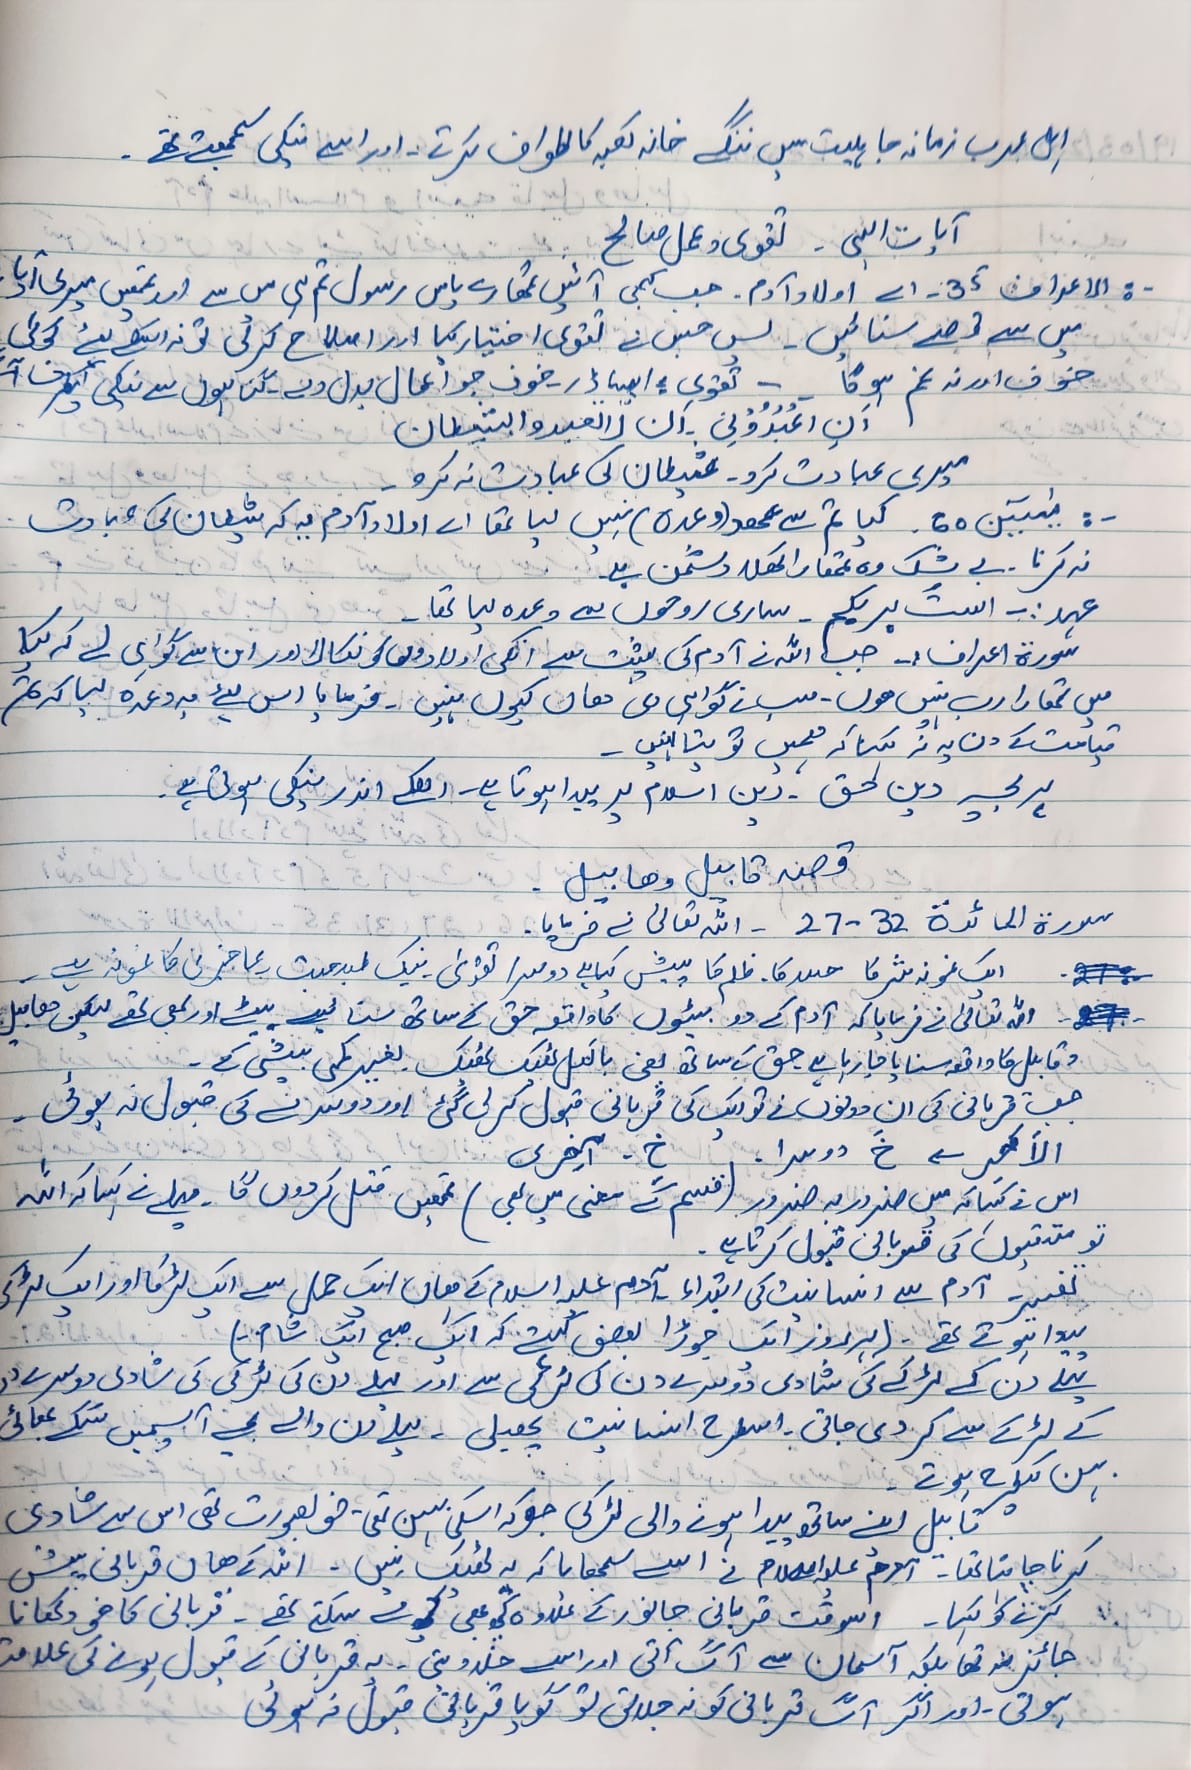 اہل عرب زمانہ جاہلیت میں ننگے خانہ کعبہ کا طواف کرتے۔ اور اسے نیکی سمجھتے تھے۔
آیات الہی - تقوی و عمل صالح
الاعراف 35۔ اے اولاد آدم۔ جب کبھی آئیں تمھارے پاس رسول تم ہی میں سے اور تمھیں میری آیات
میں سے قصے سنائیں۔ پس جس نے تقوی اختیار کیا اور اصلاح کر لی تو نہ اسکے لیئے کوئی
خوف اور نہ غم ہو گا - تقوی: ایسا ڈر۔ خوف جو اعمال بدل دے۔ گناہوں سے نیکی کیطرف آئے
اَنِ اعْبُدُوْنِی۔ ان لا تعبدوا الشیطان
میری عبادت کرو۔ شیطان کی عبادت نہ کرو۔
یٰسین 60۔ کیا تم سے عھد (وعدہ) نہیں لیا تھا اے اولاد آدم یہ کہ شیطان کی عبادت
نہ کرنا۔ بے شک وہ تمھارا کھلا دشمن ہے۔
عہد:- الست بربکم۔ ہماری روحوں سے وعدہ لیا تھا۔
سورۃ اعراف:- جب اللہ نے آدم کی پشت سے انکی اولادوں کو نکالا اور ان سے گواہی لی کہ کیا
میں تمھارا رب نہیں ہوں۔ سب نے گواہی دی ھاں کیوں نہیں۔ فرمایا اس لیئے یہ وعدہ لیا کہ تم
قیامت کے دن یہ نہ کہنا کہ ہمیں تو پتا نہیں۔
ہر بچہ دین حق - دین اسلام پر پیدا ہوتا ہے۔ اسکے اندر نیکی ہوتی ہے۔
قصہ قابیل و ھابیل۔
سورۃ المائدۃ 32-27 - اللہ تعالیٰ نے فرمایا۔
ایک نمونہ شر کا حسد کا۔ ظلم کا پیش کیا ہے دوسرا تقوٰی۔ نیک طبیعت۔ عاجزی کا نمونہ ہے۔
اللہ تعالیٰ نے فرمایا کہ آدم کے دو بیٹوں کا واقعہ حق کے ساتھ سنا بیٹے اور بھی تھے لیکن ھابیل
و قابیل کا واقعہ سنایا جا رہا ہے حق کے ساتھ یعنی بالکل ٹھیک ٹھیک۔ بغیر کمی بیشی کے۔
جب قربانی کی ان دونوں نے تو ایک کی قربانی قبول کر لی گئی اور دوسرے کی قبول نہ ہوئی۔
الآخر سے خَ دوسرا۔ خِ - آخری
اس نے کہا کہ میں ضرور بہ ضرور (قسم کے معنی میں بھی) تمھیں قتل کر دوں گا۔ پہلے نے کہا کہ اللہ
تو متقیوں کی قربانی قبول کرتا ہے۔
تفسیر۔ آدم سے انسانیت کی ابتداء۔ آدم علیہ السلام کے ھاں ایک حمل سے ایک لڑکا اور ایک لڑکی
پیدا ہوتے تھے۔ (ہر روز ایک جوڑا بعض کہتے کہ ایک صبح ایک شام۔)
پہلے دن کے لڑکے کی شادی دوسرے دن کی لڑکی سے اور پہلے دن کی لڑکی کی شادی دوسرے دن
کے لڑکے سے کر دی جاتی۔ اسطرح انسانیت پھیلی۔ پہلے دن والے بچے آپسمیں سگے بھائی
بہن کیطرح ہوتے۔
قابیل اپنے ساتھ پیدا ہونے والی لڑکی جو کہ اسکی بہن تھی۔ خوبصورت تھی اس سے شادی
کرنا چاہتا تھا۔ آدم علیہ السلام نے اسے سمجھایا کہ یہ ٹھیک نہیں۔ اللہ کے ھاں قربانی پیش
کرنے کو کہا۔ اسوقت قربانی جانور کے علاوہ بھی سکتے تھے۔ قربانی کا خود کھانا
جائز نہ تھا بلکہ آسمان سے آگ آتی اور اسے جلا دیتی۔ یہ قربانی کے قبول ہونے کی علامت
ہوتی۔ اور اگر آگ قربانی کو نہ جلاتی تو گویا قربانی قبول نہ ہوئی